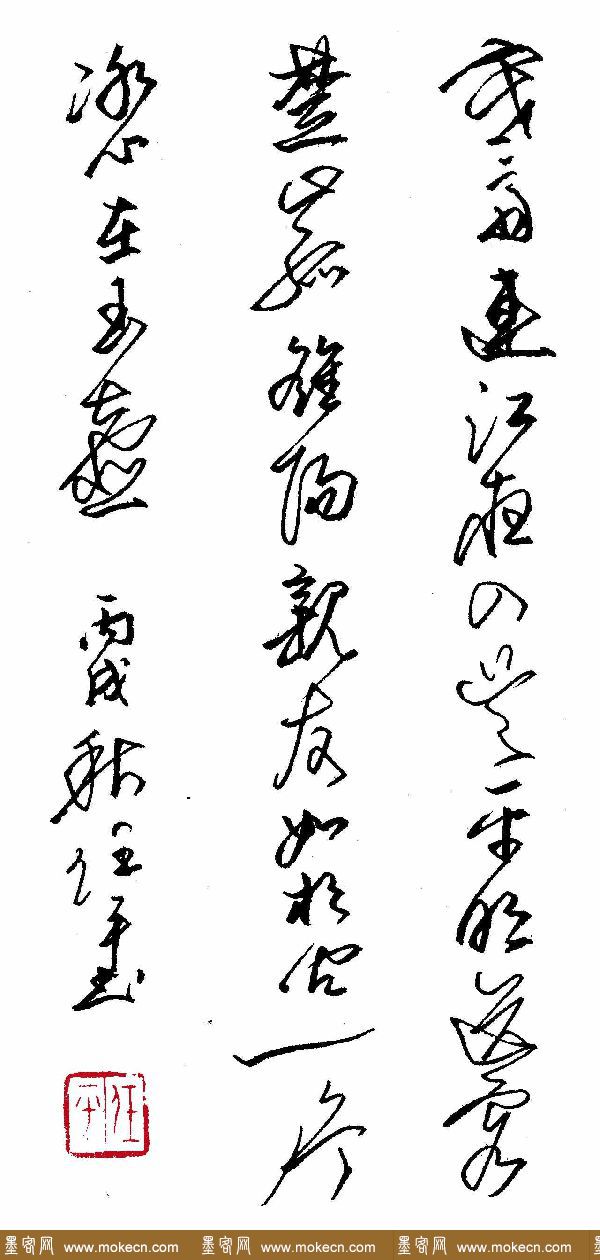 寒雨連江夜入吳平明送客
楚山孤雒陽親友如相問一片
冰心在玉壺 丙戌秋任平書
任平
墨客网 www.mokecn.com 墨客网 www.mokecn.com 墨客网 www.mokecn.com